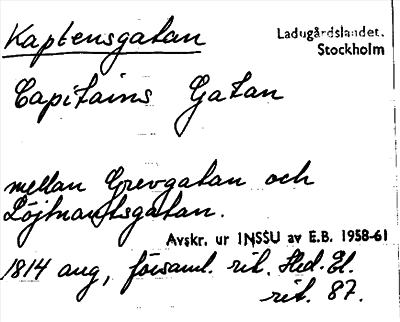 Kaptensgatan
Ladugårdslandet.
Stockholm
Capitains Gatan
mellan Grevgatan och
Löjtnantsgatan.
Avskr. ur INSSU av E.B. 1958-61
1814 aug, församl. rit. Hed. El.
rit. 87.